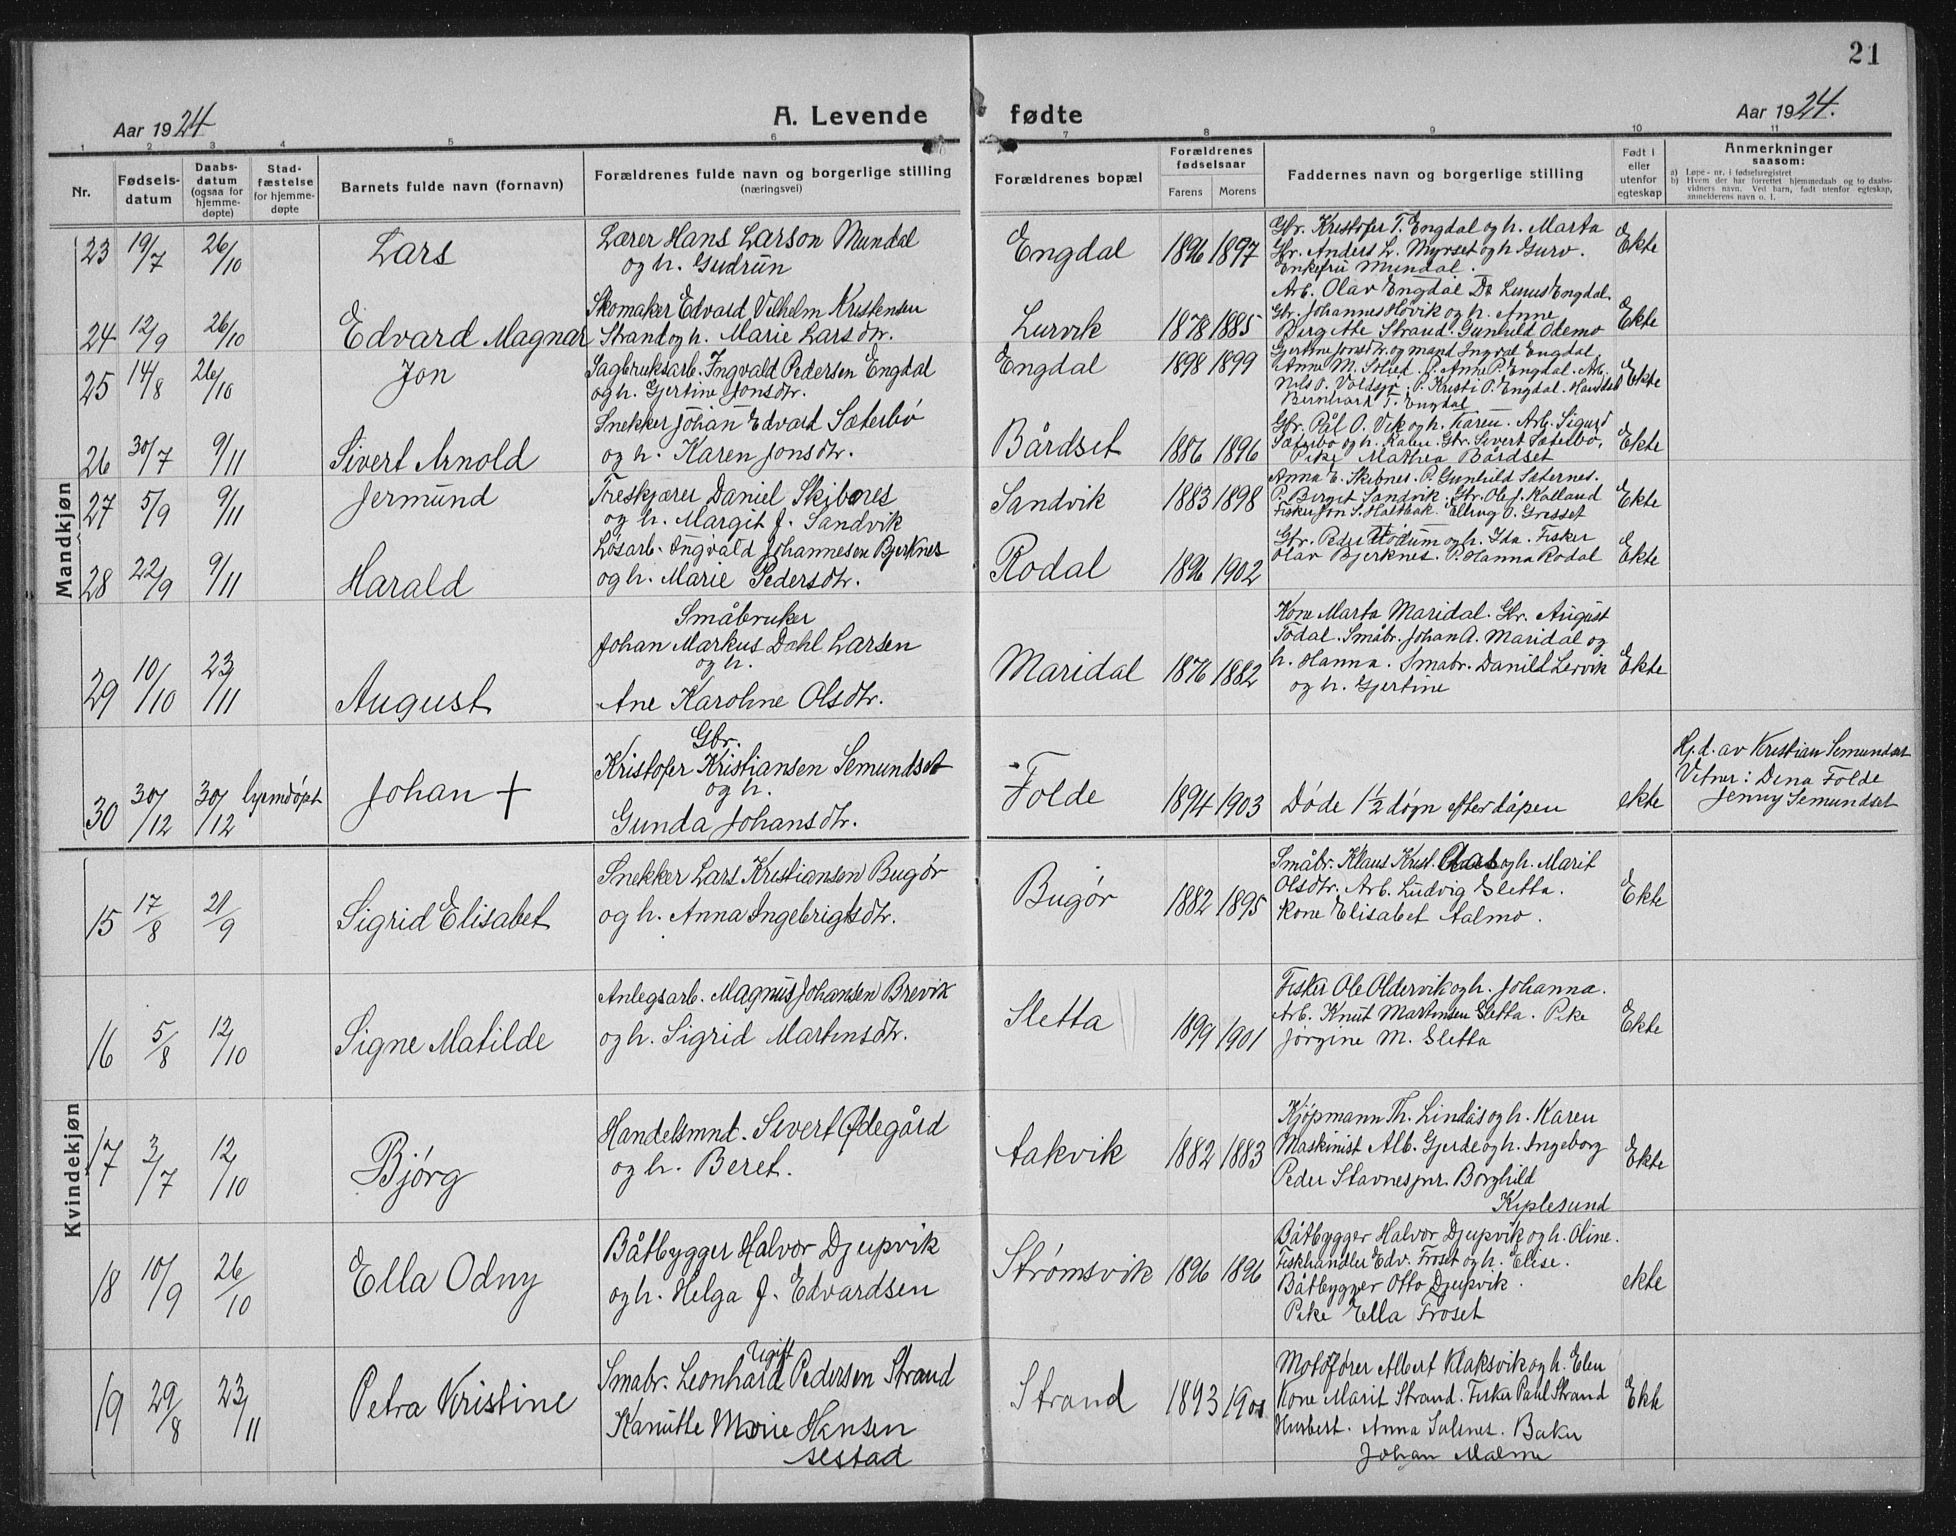 21
Aar 1924
A. Levende fødte
Aar 1924.
1 2 3 4 5 6 7 8 9 10 11
Nr.
Fødsels-
datum
Daabs-
datum
(ogsaa for
hjemme-
døpte)
Stad-
fæstelse
for hjemme-
døpte
Barnets fulde navn (fornavn)
Forældrenes fulde navn og borgerlige stilling
(næringsvei)
Forældrenes bopæl
Forældrenes
fødselsaar
Farens Morens
Faddernes navn og borgerlige stilling
Født i
eller
utenfor
egteskap
Anmerkninger
saasom:
a) Løpe-nr. i fødselsregistret
b) Hvem der har forrettet hjemmedaab og to daabs-
vidners navn. Ved barn, født utenfor egteskap,
anmelderens navn o. l.
Mandkjøn
23 19/7 26/10 Lars
Lærer Hans Larson Mundal
og h. Gudrun
Engdal 1896 1897
Gbr. Kristofer T. Engdal og h. Marta
Gbr. Anders L. Myrset og h. Guro.
Enkefru Mundal.
Ekte
24 12/9 26/10 Edvard Magnar
Skomaker Edvard Vilhelm Kristensen
Strand og h. Marie Larsdtr.
Lurvik 1878 1885
Arb. Olav Engdal Engdal.
Gbr. Johannes Høvik og h. Anne
Strand. Gunhild Odemo
Ekte
25 14/8 26/10 Jon
Sagbruksarb. Ingvald Pedersen Engdal
og h. Gjertine Jonsdtr.
Engdal 1898 1899
Gjertine Jonsdtr. og mand Ingval Engdal
Anne M. P. Anne P. Engdal. Arb.
Nils O. P. Kristi O. Engdal.
Bernhard T. Engdal
Ekte
26 30/7 9/11 Sivert Arnold
Snekker Johan Edvard Sæterbø
og h. Karen Jonsdtr.
Bårdset 1886 1896
Gbr. Pål O. Vik og h. Karen. Arb. Sigurd
Sæterbø og h. Gbr. Sivert Sæterbø,
Pike Mathea Bårdset
Ekte
27 5/9 9/11 Jermund
Treskjærer Daniel Skibnes
og h. Margit J. Sandvik
Sandvik 1883 1898
Anna E. Skibnes. P. Gunhild Sæternes.
P. Birgit Sandvik. Gbr. Ole J. Kalland
Fisker Jon S. O. Grisset
Ekte
28 22/9 9/11 Harald
Løsarb. Ingvald Johannesen Bjerknes
og h. Marie Pedersdtr.
Rodal 1896 1902
Gbr. Peder Hodum og h. Ida. Fisker
Olav Bjerknes. P. Hanna Rodal
Ekte
29 10/10 23/11 August
Småbruker
Johan Markus Dahl Larsen
og h.
Ane Karoline Olsdtr.
Maridal 1876 1882
Kone Marta Maridal. Gbr. August
Todal. Småbr. Johan A. Maridal og
h. Hanna. Småbr. Danild Lervik
og h. Gjertine
Ekte
30 30/12 30/12 hjemdøpt Johan +
Gbr.
Kristofer Kristiansen Semundset
og h.
Gunda Johansdtr.
Folde 1894 1903
Døde 1 1/2 døgn efter dåpen
ekte
Hj.d. av Kristian Semundset
Vitner: Dena Folde
Jenny Semundset
Kvindekjøn
15 17/8 21/9 Sigrid Elisabet
Snekker Lars Kristiansen Bugør
og h. Anna Ingebrigtsdtr.
Bugør 1882 1895
Småbr. Klaus Krist. og h. Marit
Olsdtr. Arb. Ludvig Sletta.
Kone Elisabet Aalmo.
Ekte
16 5/8 12/10 Signe Matilde
Anlegsarb. Magnus Johansen Brevik
og h. Sigrid Martinsdtr.
Sletta 1899 1901
Fisker Ole Oldervik og h. Johanna.
Arb. Knut Martinsen Sletta. Pike
Jørgine M. Sletta
Ekte
17 3/7 12/10 Bjørg
Handelsmnd. Sivert Ødegård
og h. Beret.
Aakvik 1882 1883
Kjøpmann Th. Lindås og h. Karen
Maskinist Alb. Gjerde og h. Ingeborg
Peder Stavnes jnr. Borghild
Kiplesund
Ekte
18 10/9 26/10 Ella Odny
Båtbygger Halvor Djupvik
og h. Helga J. Edvardsen
Strømsvik 1896 1896
Båtbygger Halvor Djupvik og h. Oline.
Fiskhandler Edv. Froset og h. Elise.
Båtbygger Otto Djupvik.
Pike Ella Froset
ekte
19 29/8 23/11 Petra Kristine
Ugift
Småbr. Leonhard Pedersen Strand
Kanutte Marie Hansen
Sestad
Strand 1893 1901
Motofører Albert Klaksvik og h. Elen
Kone Marit Strand. Fisker Paul Strand
Husbest. Anna Solsnes. Baker
Johan Malme
Ekte